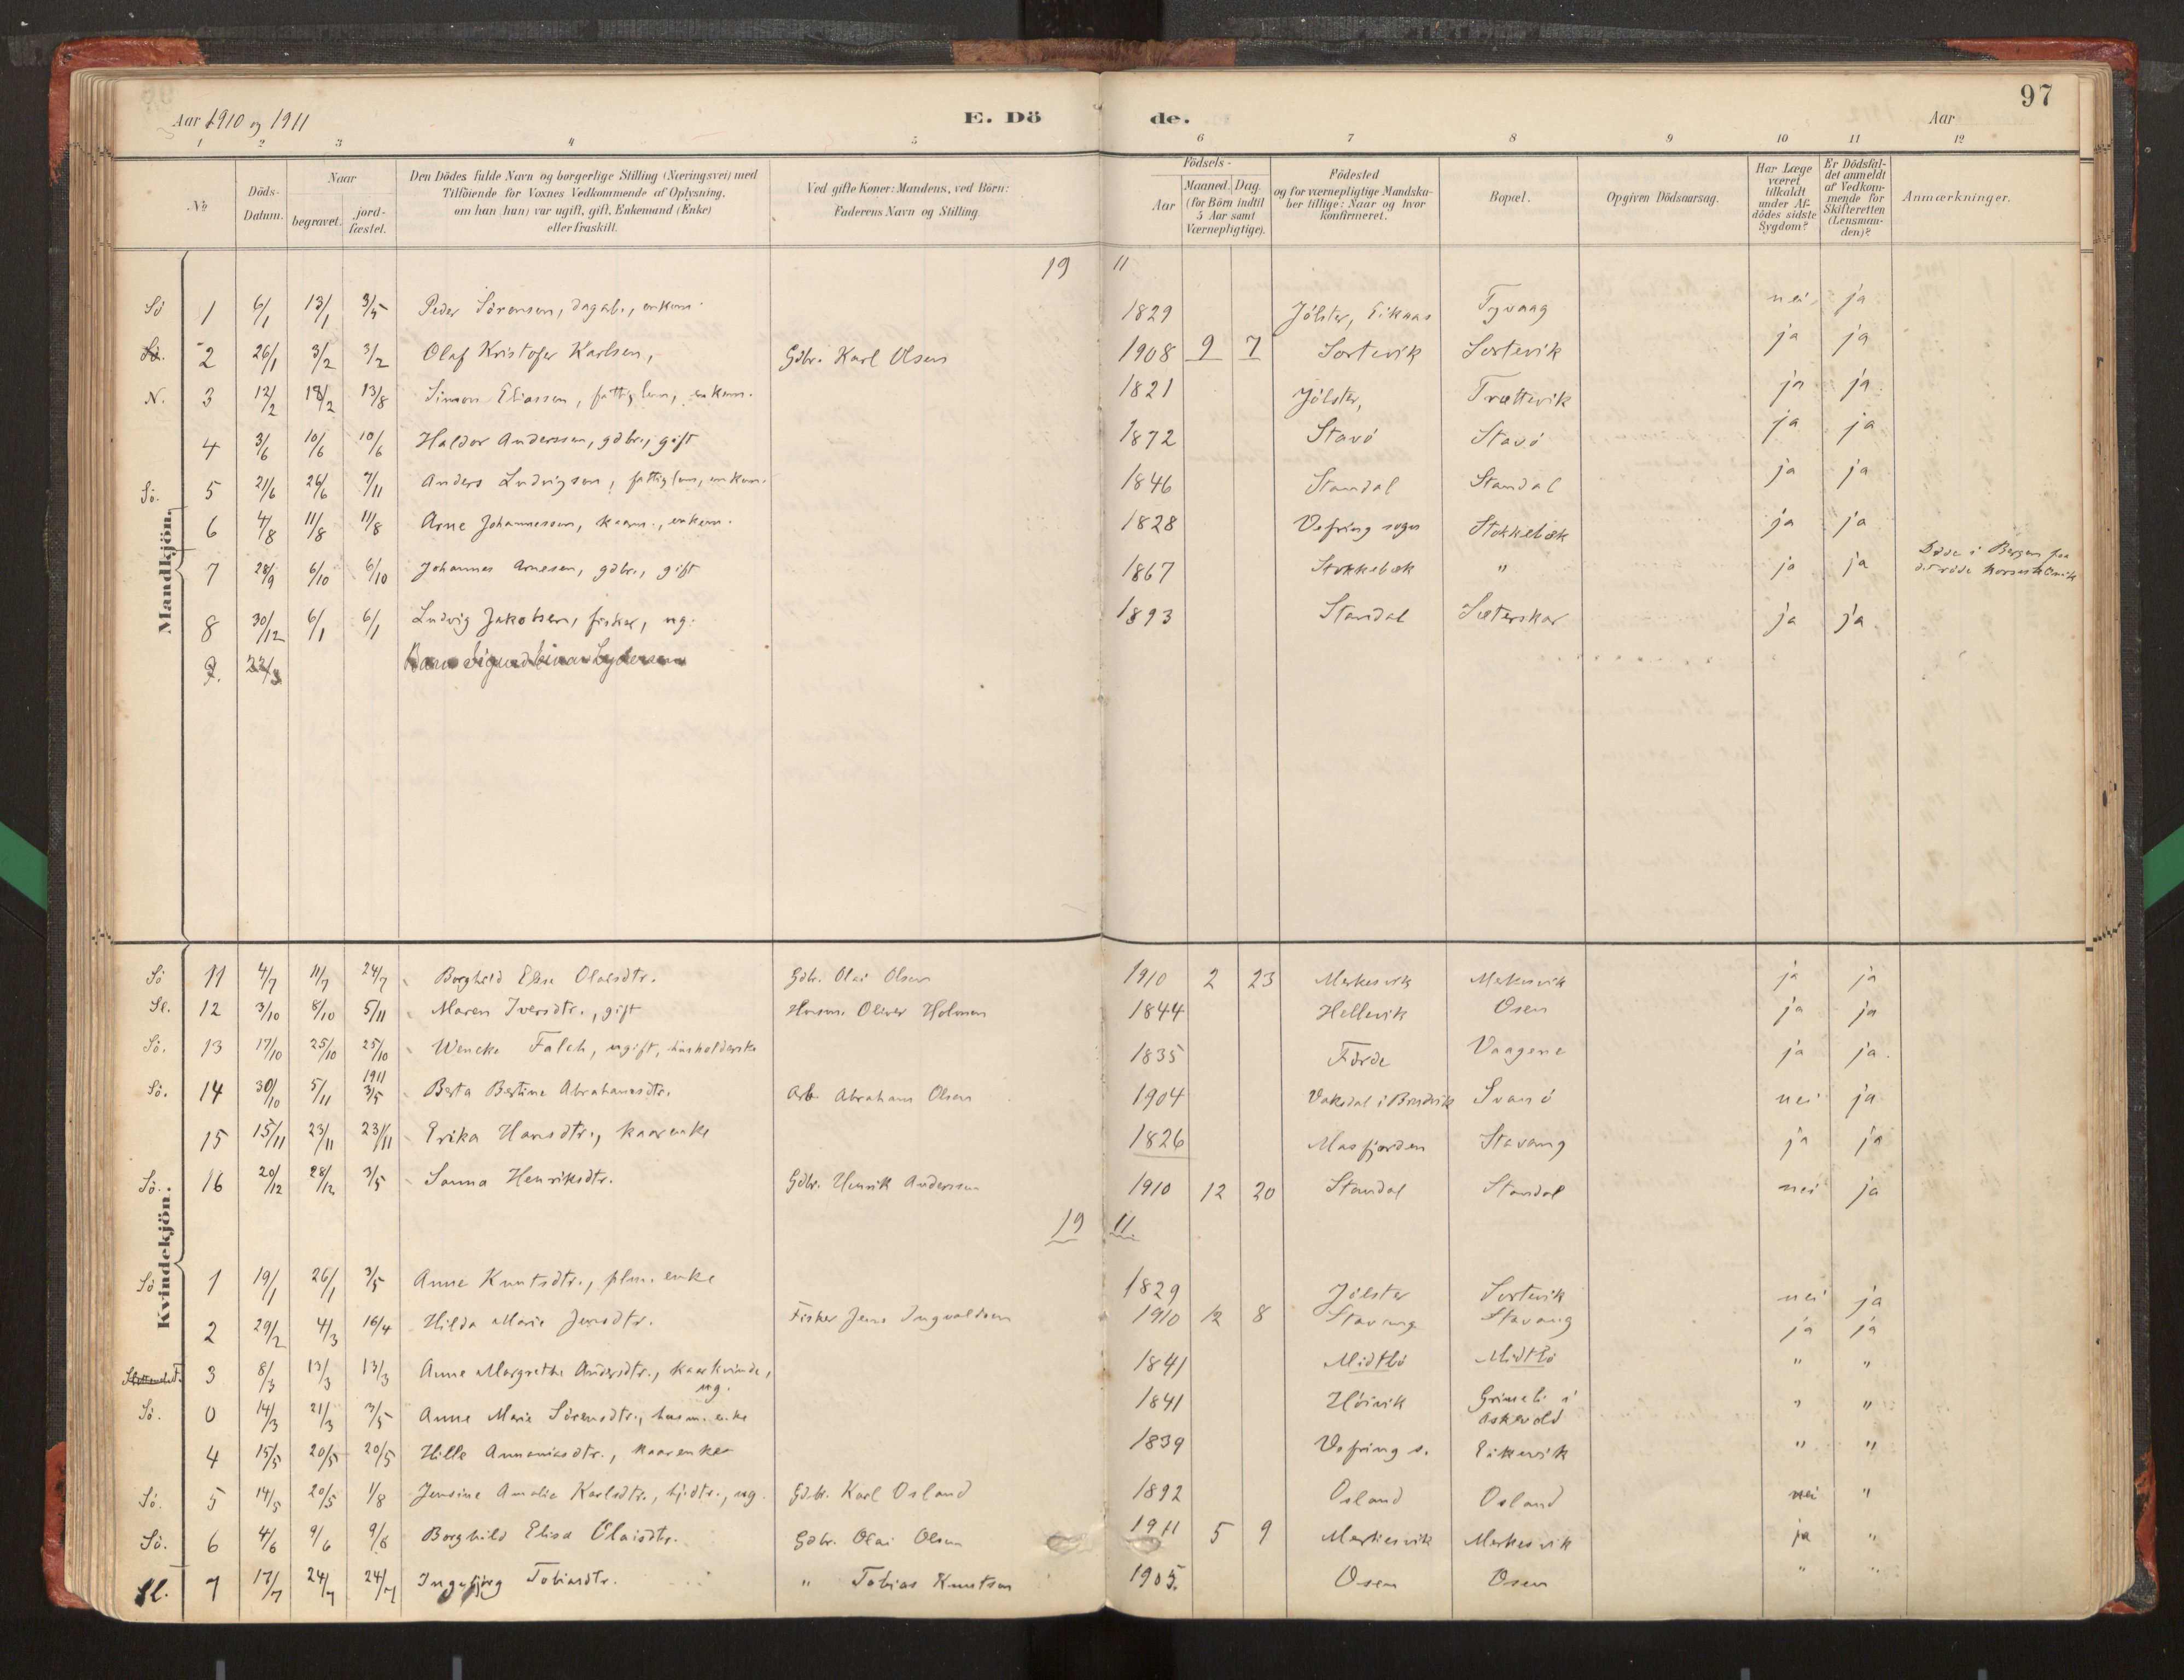 97
Aar 1910 og 1911 E. Dö de. Aar
1 2 3 4 5 6 7 8 9 10 11 12
No
Döds-Datum.
Naar begravet. jordfæstet.
Den Dödes fulde Navn og borgerlige Stilling (Næringsvei) med
Tilföiende for Voxnes Vedkommende af Oplysning,
om han (hun) var ugift, gift, Enkemand (Enke)
eller fraskilt.
Ved gifte Koner: Mandens, ved Börn:
Faderens Navn og Stilling.
Födsels-
Aar Maaned. Dag.
(for Börn indtil
5 Aar samt
Værnepligtige).
Födested
og for værnepligtige Mandska-
ber tillige: Naar og hvor
konfirmeret.
Bopæl.
Opgiven Dödsaarsag.
Har Læge
været
tilkaldt
under Af-
dödes sidste
Sygdom?
Er Dödsfal-
det anmeldt
af Vedkom-
mende for
Skifteretten
(Lensman-
den)?
Anmærkninger.
Mandkjön.
19 11
Sö 1 6/1 13/1 3/5 Peder Sörensen, dagarb., enkem. 1829 Jölster, Eikaas Tyvaag nei ja
Sö. 2 26/1 3/2 3/2 Olaf Kristofer Karlsen, Gdbr. Karl Olsen 1908 9 7 Sortevik Sortevik ja ja
N. 3 12/2 18/2 13/8 Simon Eliassen, fattiglem, enkem. 1821 Jölster, Trættevik ja ja
4 3/6 10/6 10/6 Haldor Anderssen, gdbr., gift 1872 Stavö Stavö ja ja
Sö. 5 21/6 26/6 7/11 Anders Ludvigsen, fattiglem, enkem. 1846 Standal Standal ja ja
6 4/8 11/8 11/8 Arne Johannessen, kaarm., enkem. 1828 Vefring sogn Stokkebæk ja ja
7 28/9 6/10 6/10 Johannes Arnesen, gdbr., gift 1867 Stokkebæk " ja ja Döde i Bergen paa
det röde korses klinik
8 30/12 6/1 6/1 Ludvig Jakobsen, fisker, ug. 1893 Standal Sæterskar ja ja
9. 22/3
Kvindekjön.
Sö 11 4/7 11/7 24/7 Borghild Elise Olaisdtr. Gdbr. Olai Olsen 1910 2 23 Merkesvik Merkesvik ja ja
Sl. 12 3/10 8/10 5/11 Maren Iversdtr., gift Husm. Oliver Holmen 1844 Hellevik Osen ja ja
Sö. 13 17/10 25/10 25/10 Wencke Falch, ugift, husholderske 1835 Förde Vaagene ja ja
Sö. 14 30/10 5/11 1911 3/5 Berta Bertine Abrahamsdtr. Arb. Abraham Olsen 1904 Vaksdal i Bruvik Svanö nei ja
15 15/11 23/11 23/11 Erika Hansdtr., kaarenke 1826 Masfjorden Stavang ja ja
Sö. 16 20/12 28/12 3/5 Sanna Henriksdtr. Gdbr. Henrik Anderssen 1910 12 20 Standal Standal nei ja
19 11
Sö 1 19/1 26/1 3/5 Anne Knutsdtr., plm. enke 1829 Jölster Sortevik nei ja
2 29/2 4/3 16/4 Hilda Marie Jensdtr. Fisker Jens Ingvaldsen 1910 12 8 Stavang Stavang ja ja
3 8/3 13/3 13/3 Anne Margrethe Andersdtr., kaarkvinde, ug. 1841 Midtbö Midtbö " "
Sö. 0 14/3 21/3 3/5 Anne Marie Sörensdtr., husm. enke 1841 Höivik Grimeli i
Askevold " "
4 15/5 20/5 20/5 Hille Annaniasdtr., kaarenke 1839 Vefring s. Eikevik " "
Sö. 5 14/5 20/5 1/8 Jensine Amalie Karlsdtr., hj.dtr., ug. Gdbr. Karl Osland 1892 Osland Osland nei "
Sö. 6 4/6 9/6 9/6 Borghild Elisa Olaisdtr. Gdbr. Olai Olsen 1911 5 9 Merkesvik Merkesvik ja "
Sl. 7 17/7 24/7 24/7 Ingebjörg Tobiasdtr. " Tobias Knutsen 1905. Osen Osen " "